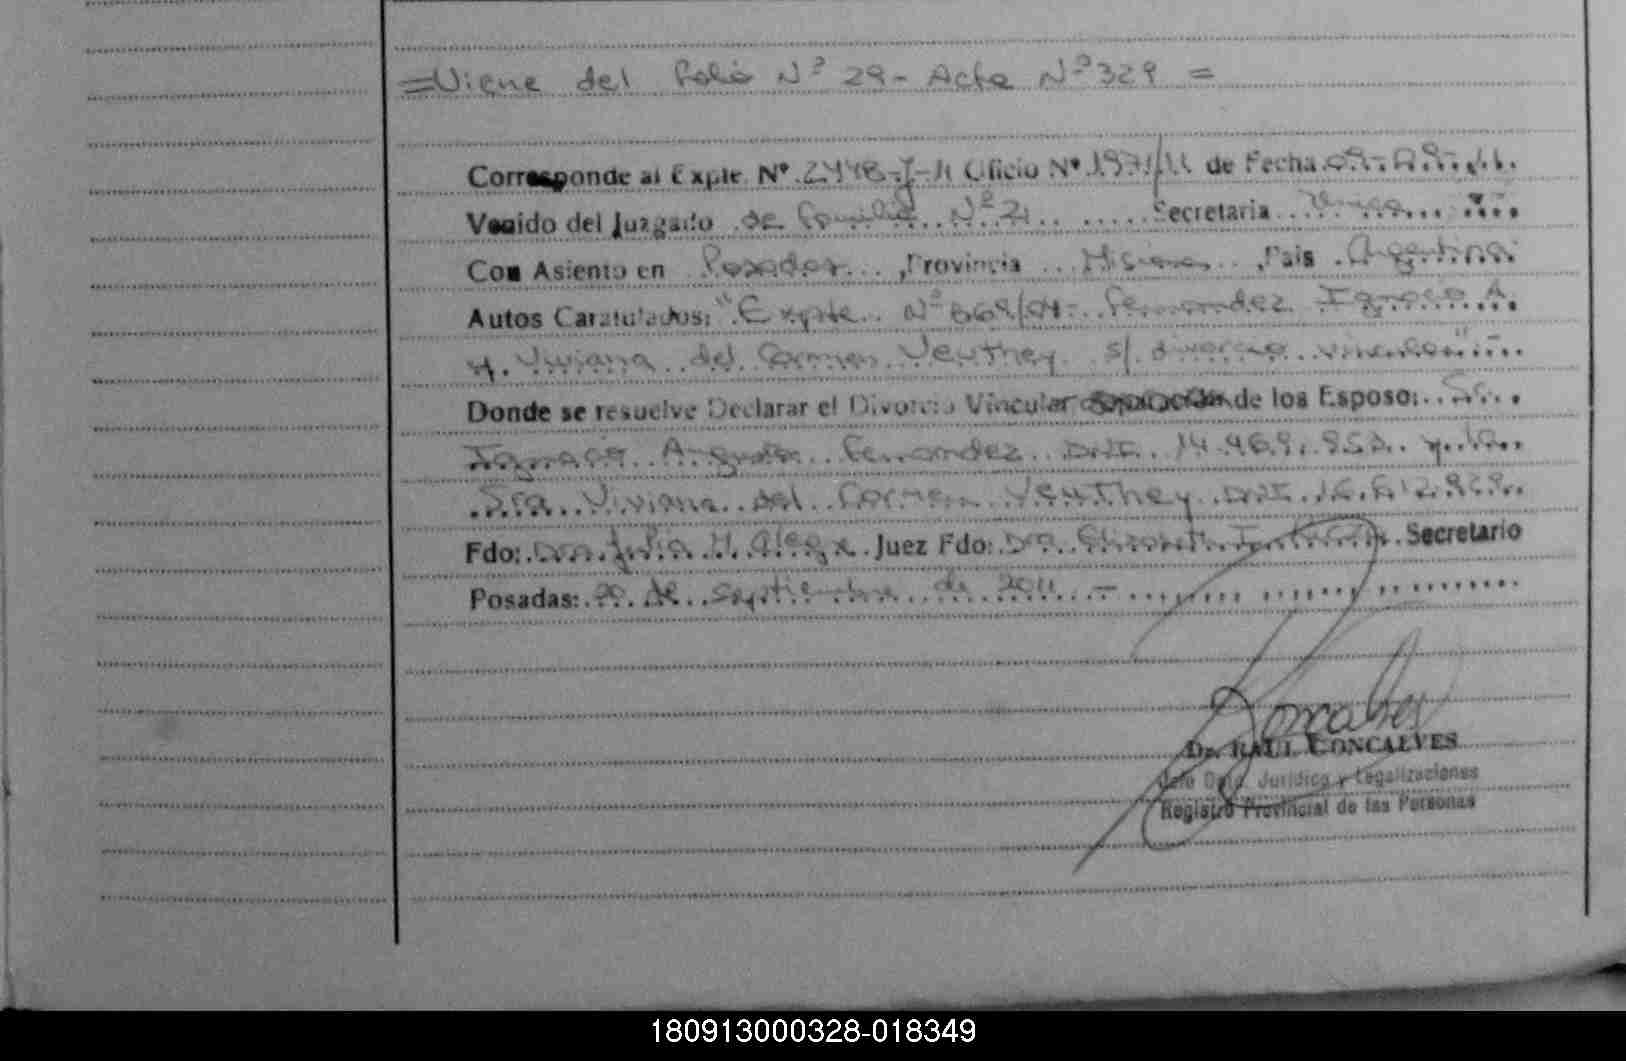 =Viene del folio Nº 29- Acta Nº 329 =
Corresponde al Expte. Nº 2448-J-11 Oficio Nº 1971/11 de Fecha 09-09-11.
Venido del Juzgado de Familia Nº 2 Secretaria Unica
Con Asiento en Posadas, Provincia Misiones, Pais Argentina
Autos Caratulados: "Expte. Nº 869/04- Fernandez Ignacio A.
y Viviana del Carmen Veuthey s/ divorcio vincular"
Donde se resuelve Declarar el Divorcio Vincular de los Esposo: Sr.
Ignacio Augusto Fernandez DNI. 14.469.953 y la
Sra Viviana del Carmen Veuthey DNI 16.612.829
Fdo: Dra. Julia H. Alegre Juez Fdo: Dra. Elizabeth Secretario
Posadas: 20 de septiembre de 2011 -
Goncalves
Dr. RAUL GONCALVES
Jefe Dpto. Juridico y Legalizaciones
Registro Provincial de las Personas
180913000328-018349